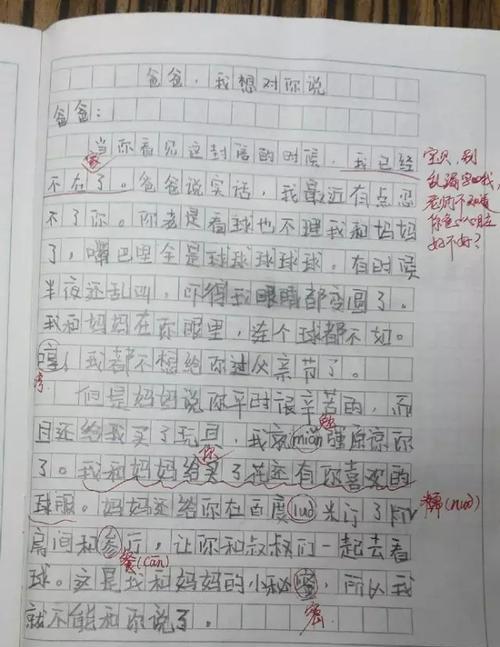 爸爸,我想对你说
爸爸:
当你看见这封信的时候,我已经
家
不在了。爸爸说实话,我最近有点忍
不了你。你老是看球也不理我和妈妈
了,嘴巴里全是球球球球球。有时候
半夜还乱叫,吓得我眼睛都变圆了。
我和妈妈在你眼里,连个球都不如。
哼!我都不想给你过父亲节了。
哼
但是妈妈说你平时很辛苦的,而
勉
且还给我买了玩具,我就mian强原谅你
你
了。我和妈妈给买了花还有你喜欢的
球服。妈妈还给你在百度luo米订了KTV
糯(nuò)
房间和参厅,让你和叔叔们一起去看
餐(cān)
球。这是我和妈妈的小秘蜜,所以我
密
就不能和你说了。
宝贝,别